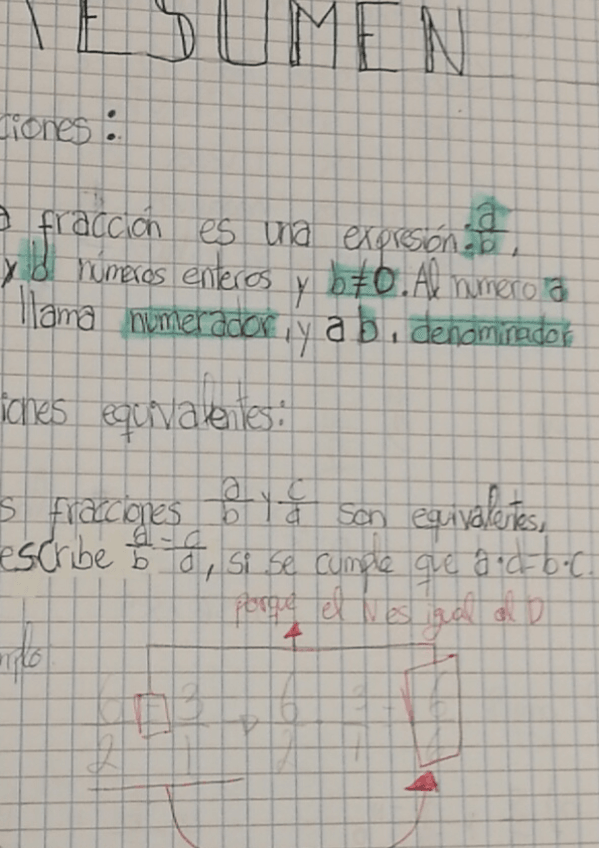 RESUMEN
ciones:
fracción es una expresión: a/b,
y b números enteros y b≠0. Al numero a
llama numerador, y a b, denominador
iones equivalentes:
s fracciones a/b y c/d son equivalentes,
escribe a/b = c/d, si se cumple que a·d=b·c.
porque el N es igual al D
mplo
6/2 = 3/1 → 6/2 3/1 = 6/6